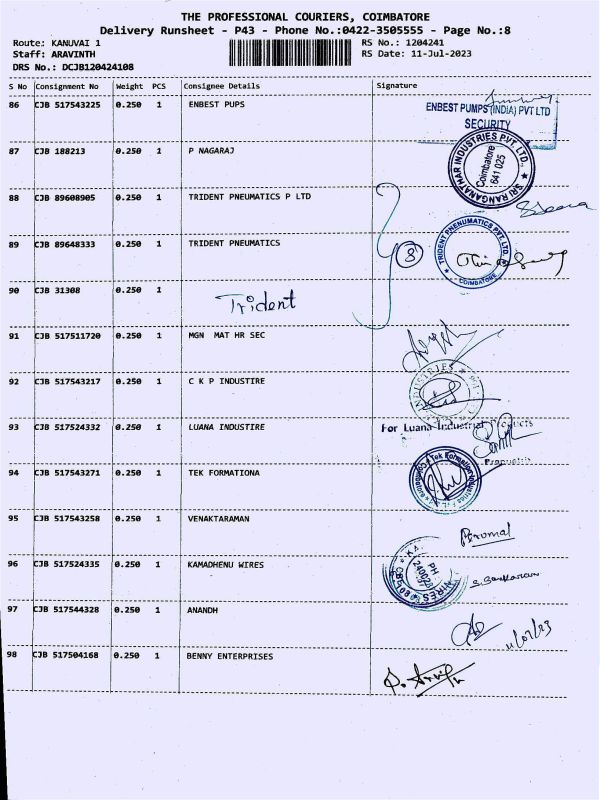 THE PROFESSIONAL COURIERS, COIMBATORE
Delivery Runsheet - P43 - Phone No.:0422-3505555 - Page No.:8
Route: KANUVAI 1 RS No.: 1204241
Staff: ARAVINTH RS Date: 11-Jul-2023
DRS No.: DCJB120424108
S No Consignment No Weight PCS Consignee Details Signature
86 CJB 517543225 0.250 1 ENBEST PUPS
ENBEST PUMPS (INDIA) PVT LTD
SECURITY
87 CJB 188213 0.250 1 P NAGARAJ
SRI RANGANATHAR INDUSTRIES PVT. LTD.,
Coimbatore
641 025
88 CJB 89608905 0.250 1 TRIDENT PNEUMATICS P LTD
89 CJB 89648333 0.250 1 TRIDENT PNEUMATICS
8
TRIDENT PNENUMATICS PVT. LTD.
COIMBATORE
90 CJB 31308 0.250 1 Trident
91 CJB 517511720 0.250 1 MGN MAT HR SEC
92 CJB 517543217 0.250 1 C K P INDUSTIRE
INDUSTRIES
93 CJB 517524332 0.250 1 LUANA INDUSTIRE
For Luana Industrial Products
94 CJB 517543271 0.250 1 TEK FORMATIONA
Tek Formation
95 CJB 517543258 0.250 1 VENAKTARAMAN
96 CJB 517524335 0.250 1 KAMADHENU WIRES
PH
WIRES
97 CJB 517544328 0.250 1 ANANDH
11/07/23
98 CJB 517504168 0.250 1 BENNY ENTERPRISES